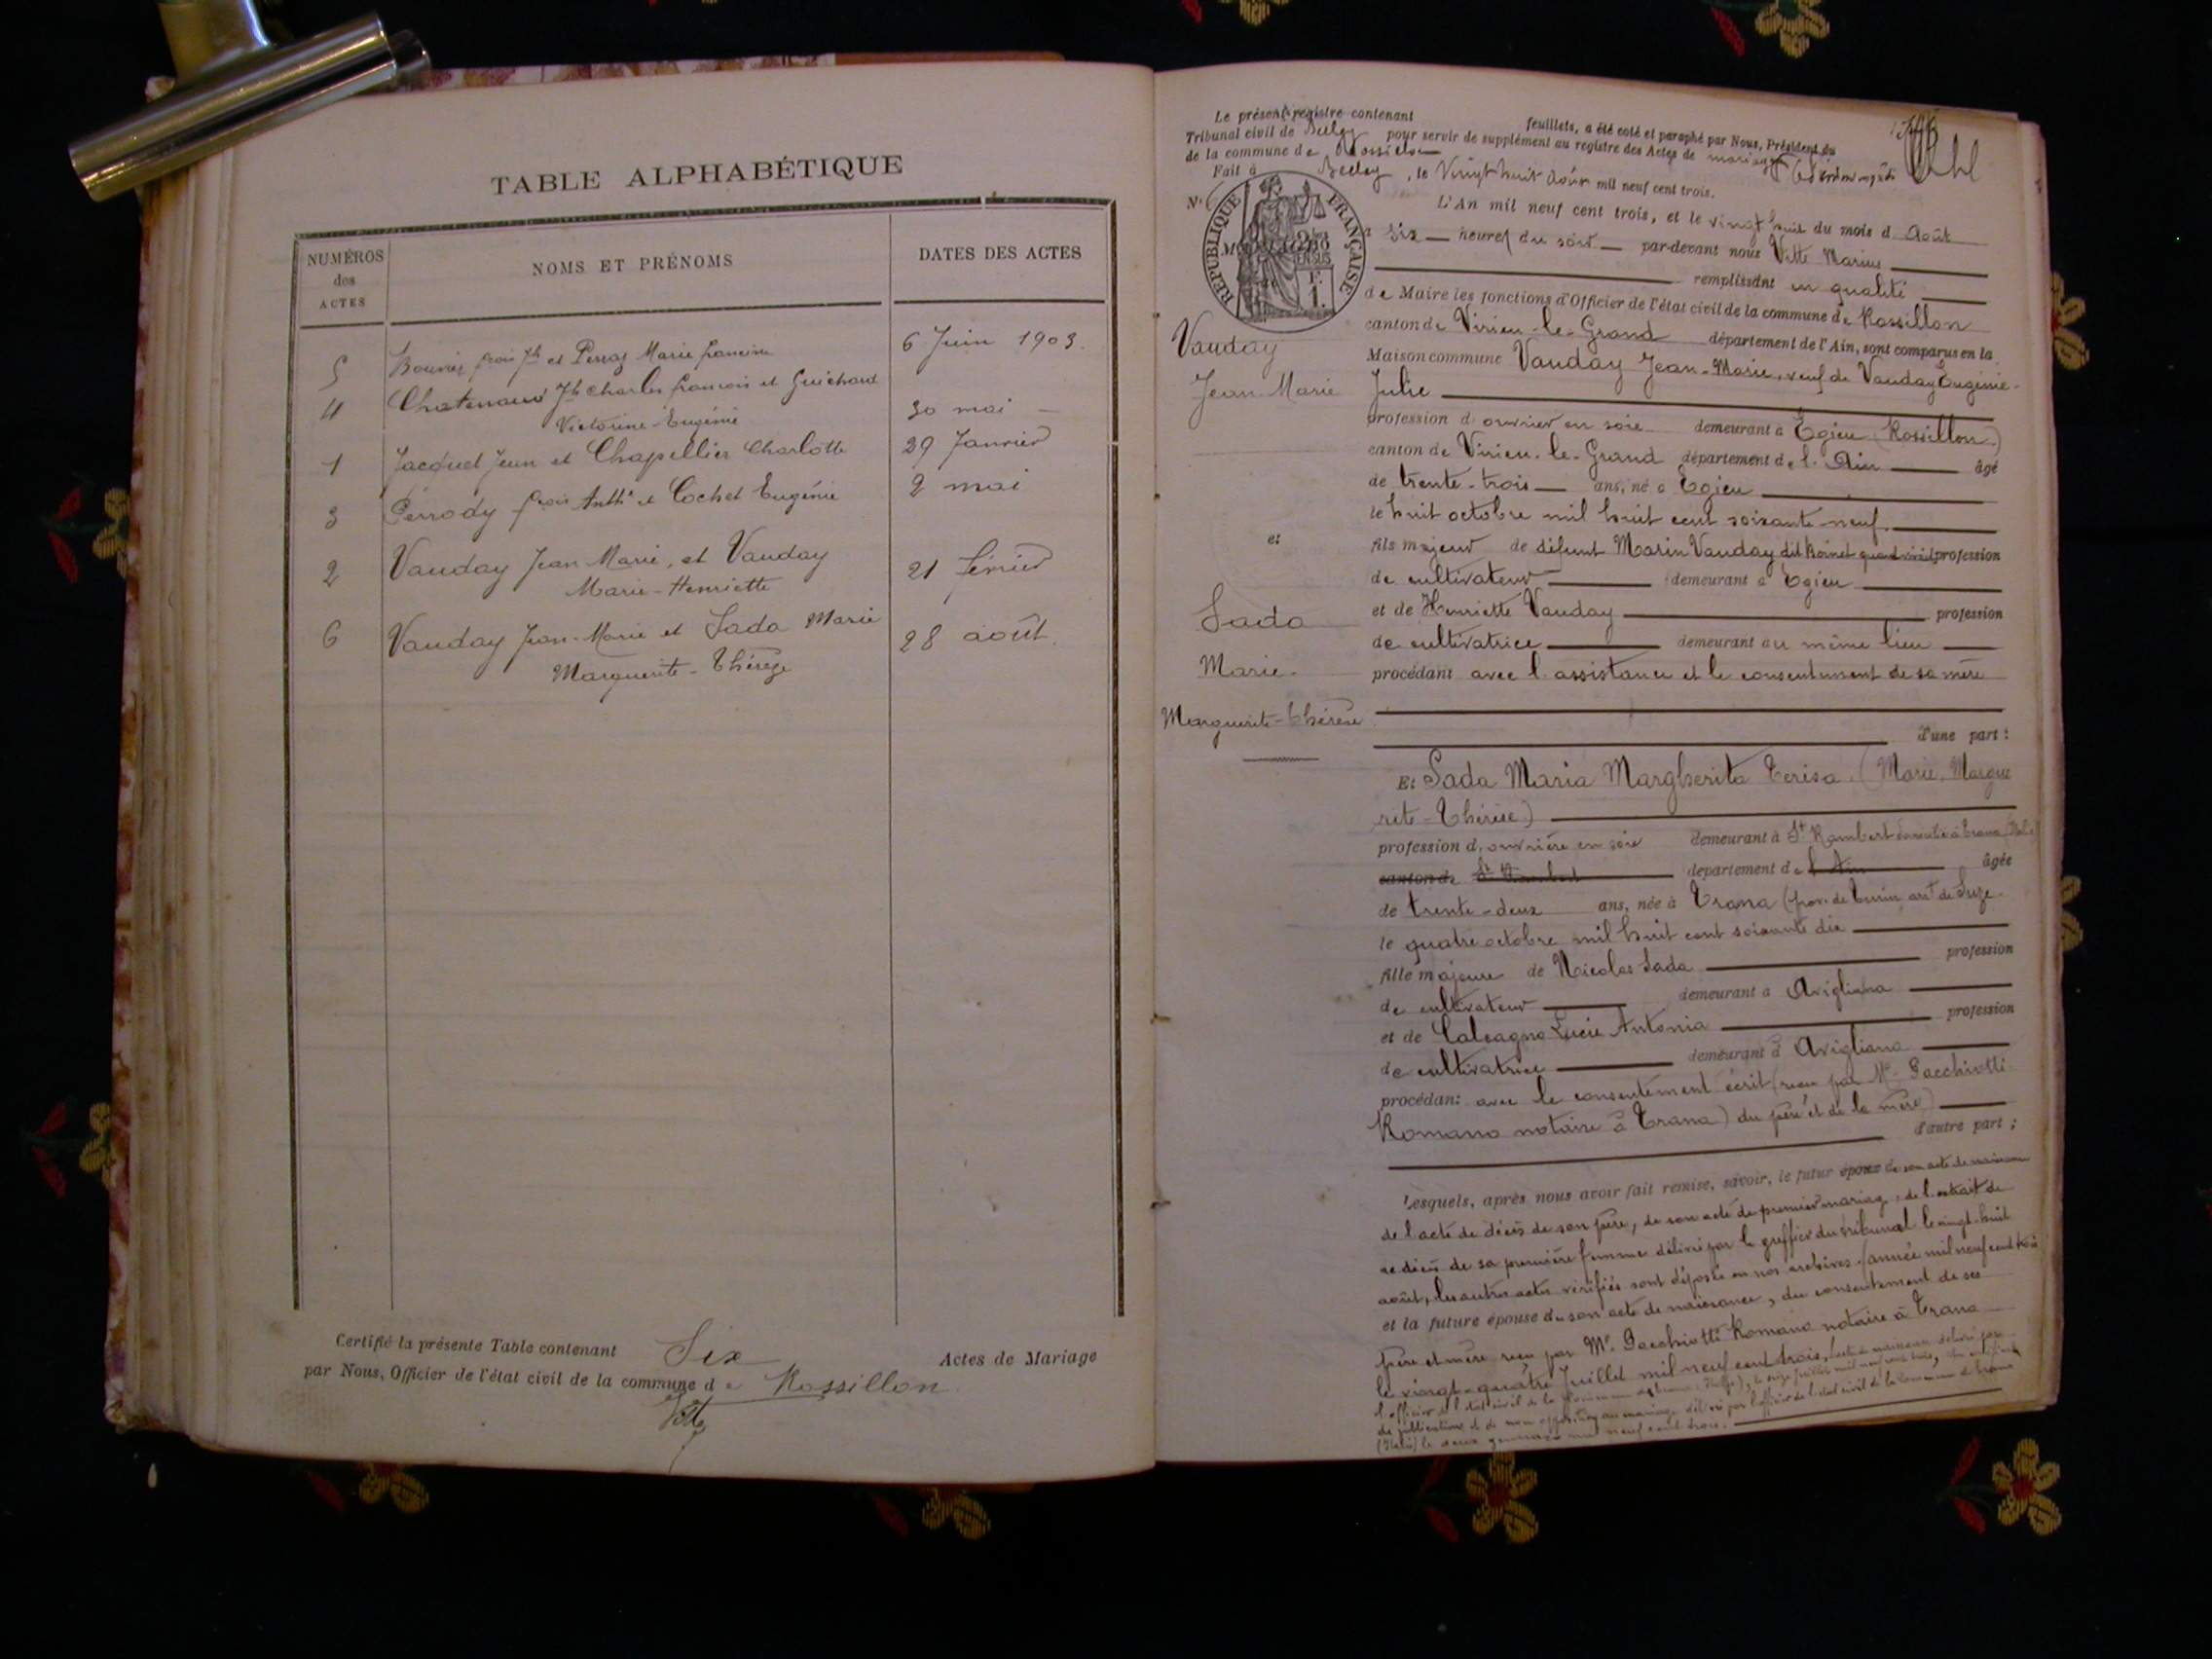 TABLE ALPHABÉTIQUE
NUMÉROS des ACTES
NOMS ET PRÉNOMS
DATES DES ACTES
5 Bouvier frois Jh et Perraz Marie francine 6 Juin 1903.
4 Chatenaud Jh Charles francois et Guichard
Victorine-Eugénie 30 mai —
1 Jacquet Jean et Chapellier Charlotte 29 Janvier
3 Perrody frois Anthe et Cochet Eugénie 2 mai
2 Vauday Jean-Marie, et Vauday
Marie-Henriette 21 février
6 Vauday Jean-Marie et Sada Marie
Marguerite-Thérèze 28 août.
Certifié la présente Table contenant Six Actes de Mariage
par Nous, Officier de l'état civil de la commune de Rossillon
Vitte
Le présent registre contenant feuillets, a été coté et paraphé par Nous, Président du
Tribunal civil de Belley pour servir de supplément au registre des Actes de mariage
de la commune de Rossillon
Fait à Belley, le Vingt huit Août mil neuf cent trois.
No 6
RÉPUBLIQUE FRANÇAISE
2/10 EN SUS
F. 1.
L'An mil neuf cent trois, et le vingt huit du mois d Août
à six — heures du soir — par-devant nous Vitte Marius
remplissant en qualité
de Maire les fonctions d'Officier de l'état civil de la commune de Rossillon
canton de Virieu-le-Grand département de l'Ain, sont comparus en la
Maison commune Vauday Jean-Marie, veuf de Vauday Eugénie-
Julie
Vauday
Jean-Marie
et
Sada
Marie-
Marguerite-Thérèse
profession d'ouvrier en soie demeurant à Egieu (Rossillon)
canton de Virieu-le-Grand département de l'Ain — âgé
de trente-trois — ans, né à Egieu
le huit octobre mil huit cent soixante-neuf.
fils majeur de défunt Marin Vauday dit Roinet quand vivait profession
de cultivateur — demeurant à Egieu
et de Henriette Vauday — profession
de cultivatrice — demeurant au même lieu
procédant avec l'assistance et le consentement de sa mère
d'une part :
Et Sada Maria Margherita Terisa. (Marie, Margue
rite-Thérèse)
profession d'ouvrière en soie demeurant à St Rambert domiciliée à Trana (Italie)
canton de St Rambert département de l'Ain âgée
de trente-deux ans, née à Trana (prov. de Turin arrt de Suze
le quatre octobre mil huit cent soixante dix
fille majeure de Nicolas Sada — profession
de cultivateur — demeurant à Avigliana
et de Calcagno Lucie Antonia — profession
de cultivatrice — demeurant à Avigliana
procédant avec le consentement écrit (reçu par Me Gacchiotti
Romano notaire à Trana) du père et de la mère)
d'autre part ;
Lesquels, après nous avoir fait remise, savoir, le futur époux de son acte de naissance
de l'acte de décès de son père, de son acte de premier mariage, de l'extrait de
de décès de sa première femme délivré par le greffier du tribunal le vingt-huit
août, les autres actes vérifiés sont déposés en nos archives. (année mil neuf cent trois
et la future épouse de son acte de naissance, du consentement de ses
père et mère reçu par Me Gacchiotti Romano notaire à Trana
le vingt-quatre Juillet mil neuf cent trois, l'acte de naissance délivré par
l'officier de l'état civil de la Commune de Trana (Italie), le
de publications et de non opposition au mariage délivré par l'officier de l'état civil de la Commune de Trana
(Italie) le mil neuf cent trois.